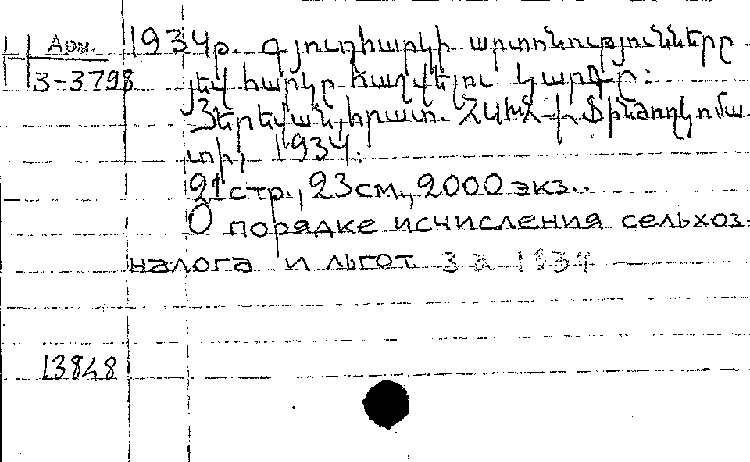 Арм.
З-3798
1934թ. գյուղհարկի արտոնությունները
յեվ հարկը հաշվելու կարգը:
Յերեվան, հրատ. ՀԱԽՀ Ֆինժողկոմա
տի, 1934.
21 стр., 23 см., 2000 экз..
О порядке исчисления сельхоз.
налога и льгот за 1934
13848